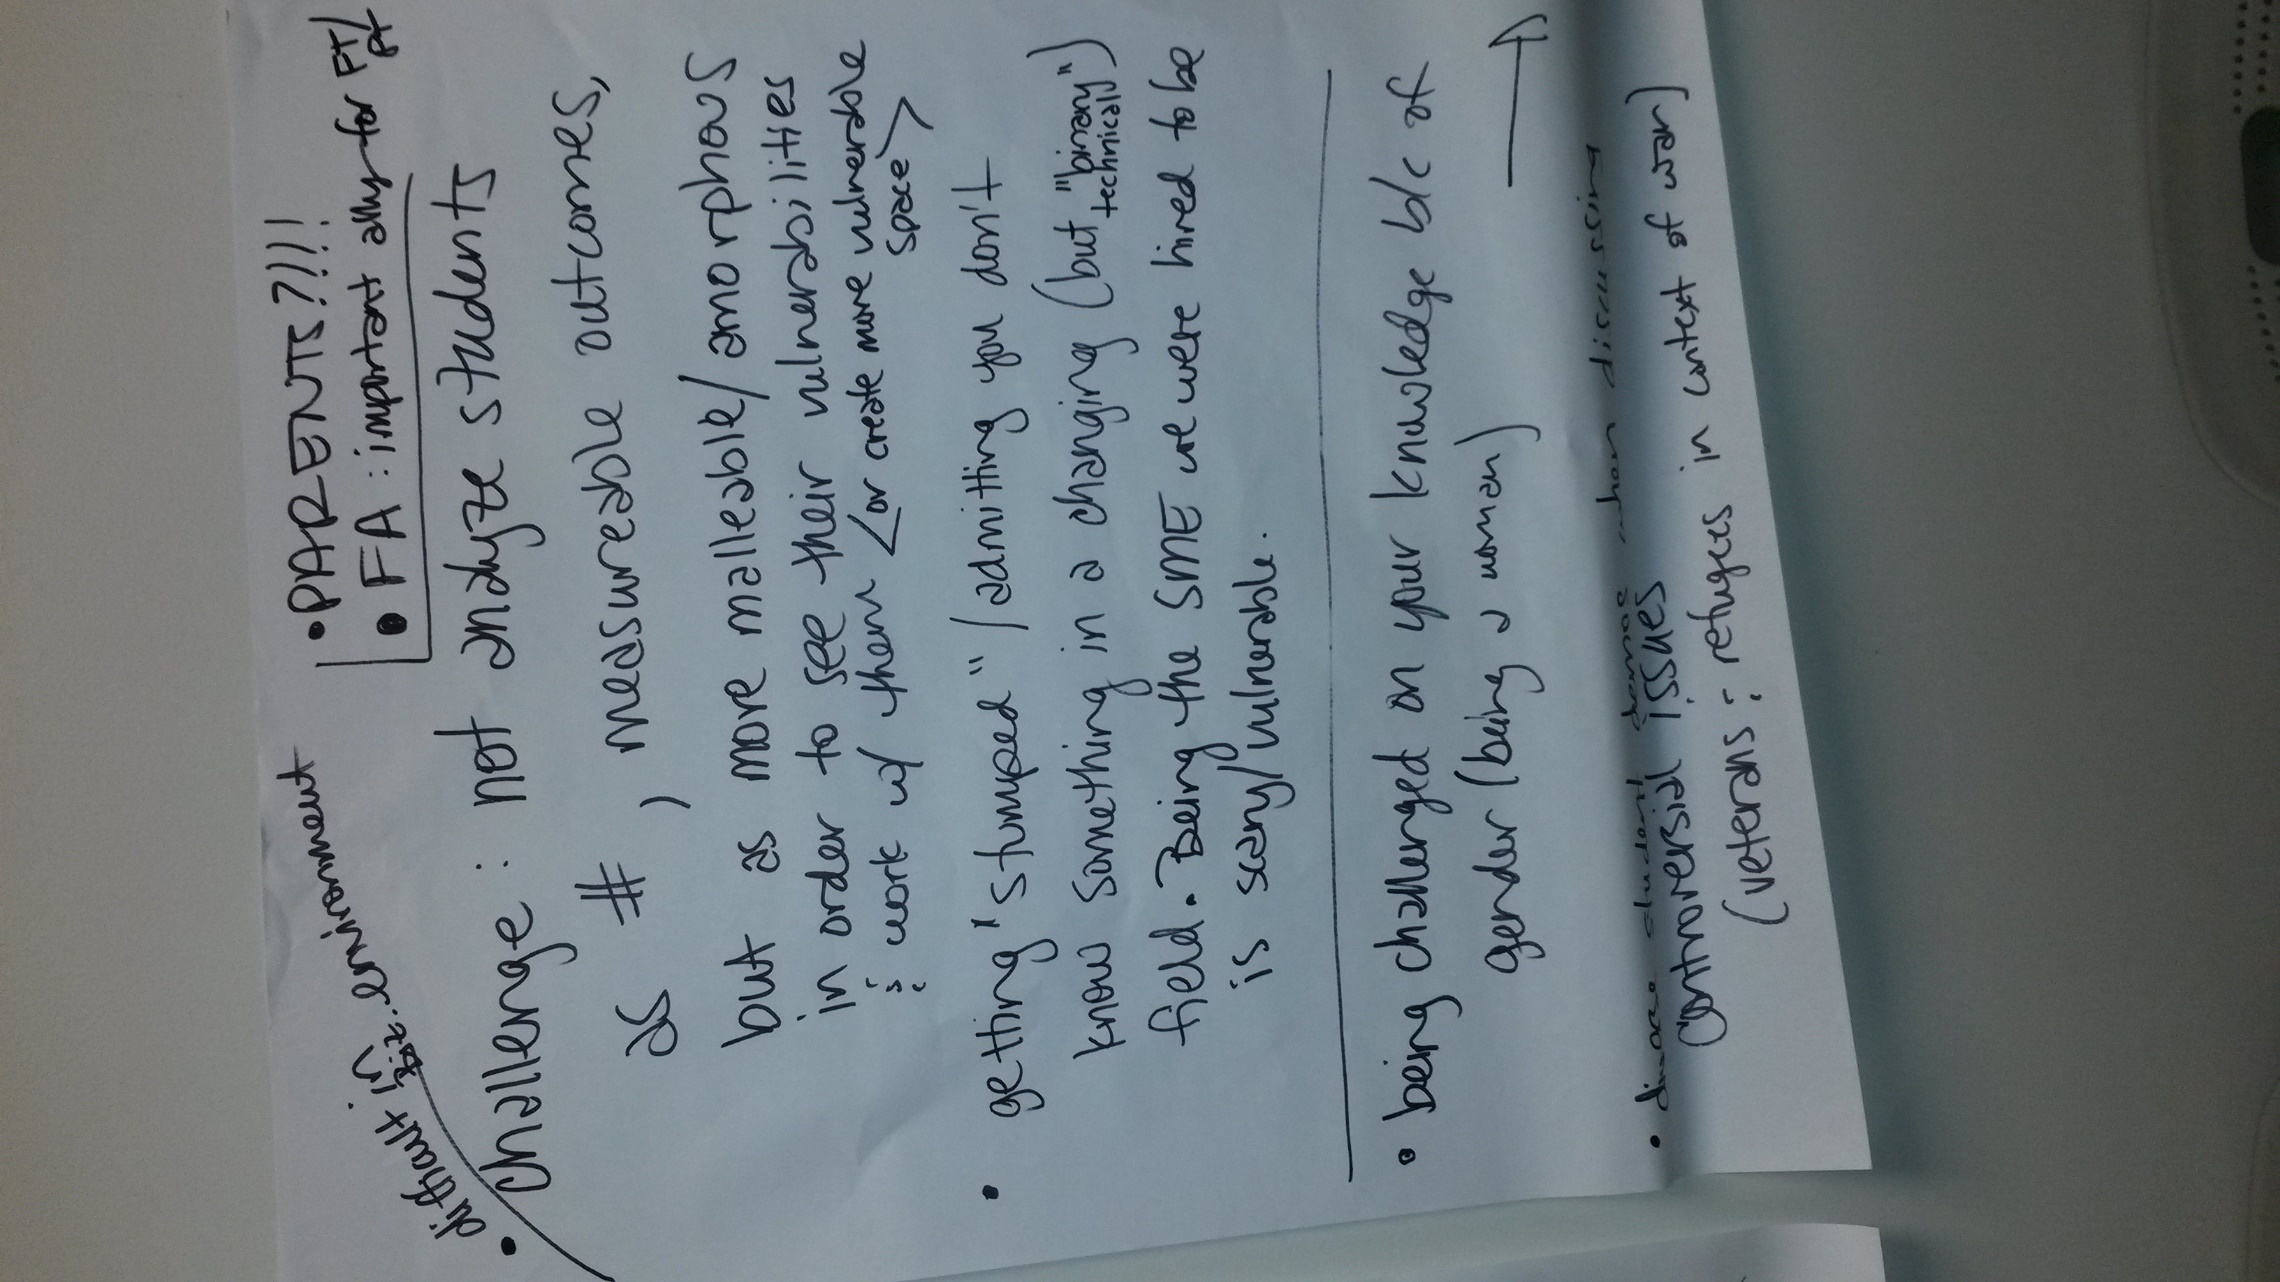 • difficult in
biz. environment
• PARENTS?!!!
• FA: important ally for FT/
PT
• Challenge: not analyze students
as #, measureable outcomes,
but as more malleable/amorphous
in order to see their vulnerabilities
& work w/ them <or create more vulnerable
space>
• getting "stumped"/admitting you don't
know something in a changing (but "binary"
technically)
field. Being the SME we were hired to be
is scary/vulnerable.
• being challenged on your knowledge b/c of
gender (being a woman)
•
controversial issues
(veterans: refugees in context of war)